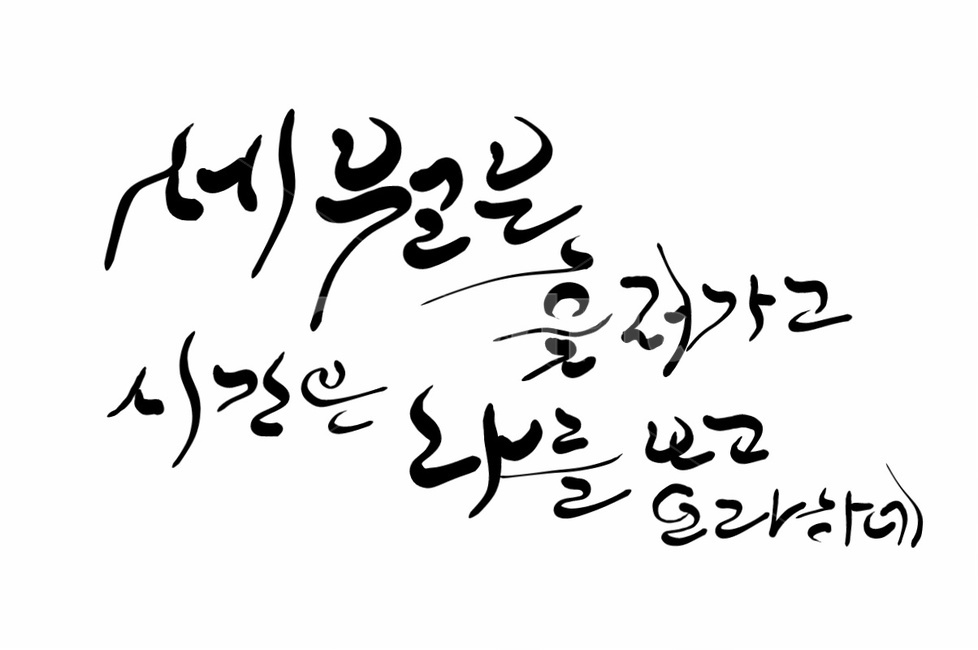 세월은
흘러가고
시간은 나를 보고
오라하네